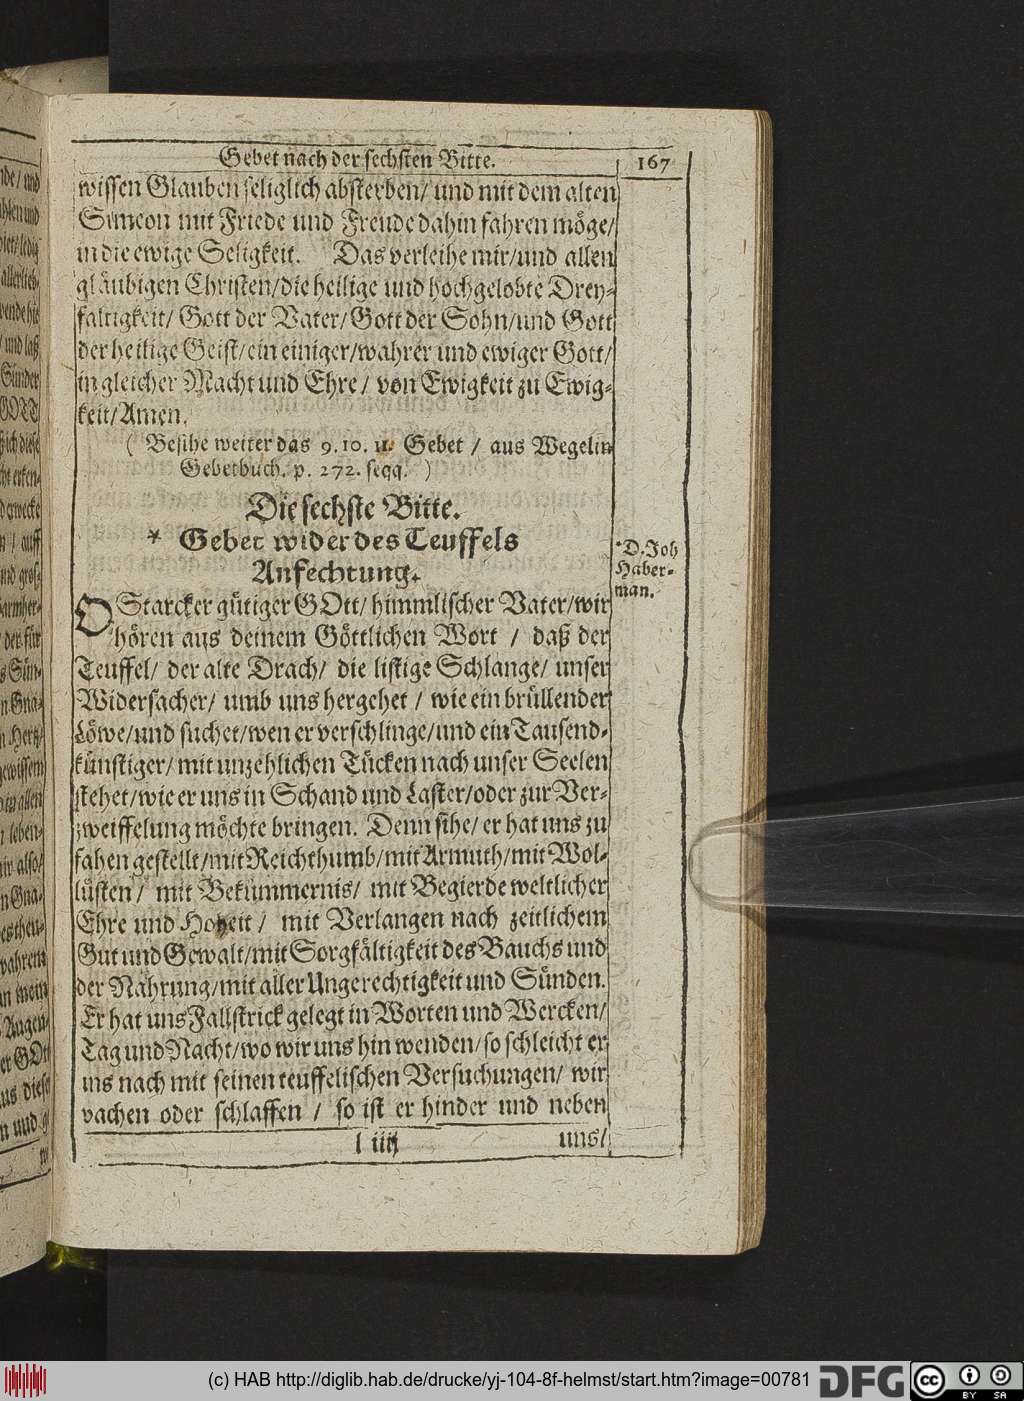 Gebet nach der sechsten Bitte. 167
wissen Glauben seliglich absterben/ und mit dem alten
Simeon mit Friede und Freude dahin fahren möge/
in die ewige Seligkeit. Das verleihe mir/und allen
gläubigen Christen/die heilige und hochgelobte Drey-
faltigkeit/ Gott der Vater/Gott der Sohn/und Gott
der heilige Geist/ein einiger/wahrer und ewiger Gott/
in gleicher Macht und Ehre/ von Ewigkeit zu Ewig-
keit/Amen.
( Besihe weiter das 9. 10. 11. Gebet / aus Wegelin
Gebetbuch. p. 272. seqq. )
Die sechste Bitte.
* Gebet wider des Teuffels
Anfechtung.
*D. Joh
Haber-
man.
O Starcker gütiger GOtt/ himmlischer Vater/wir
hören aus deinem Göttlichen Wort / daß der
Teuffel/ der alte Drach/ die listige Schlange/ unser
Widersacher/ umb uns hergehet / wie ein brüllender
Löwe/und suchet/wen er verschlinge/und ein Tausend-
künstiger/ mit unzehlichen Tücken nach unser Seelen
stehet/wie er uns in Schand und Laster/oder zur Ver-
zweiffelung möchte bringen. Denn sihe/ er hat uns zu
fahen gestellt/mit Reichthumb/mit Armuth/mit Wol-
lüsten/ mit Bekümmernis/ mit Begierde weltlicher
Ehre und Hoheit / mit Verlangen nach zeitlichem
Gut und Gewalt/mit Sorgfältigkeit des Bauchs und
der Nahrung/mit aller Ungerechtigkeit und Sünden.
Er hat uns Fallstrick gelegt in Worten und Wercken/
Tag und Nacht/wo wir uns hin wenden/so schleicht er
uns nach mit seinen teuffelischen Versuchungen/ wir
wachen oder schlaffen / so ist er hinder und neben
l iiij uns/
(c) HAB http://diglib.hab.de/drucke/yj-104-8f-helmst/start.htm?image=00781 DFG cc BY SA